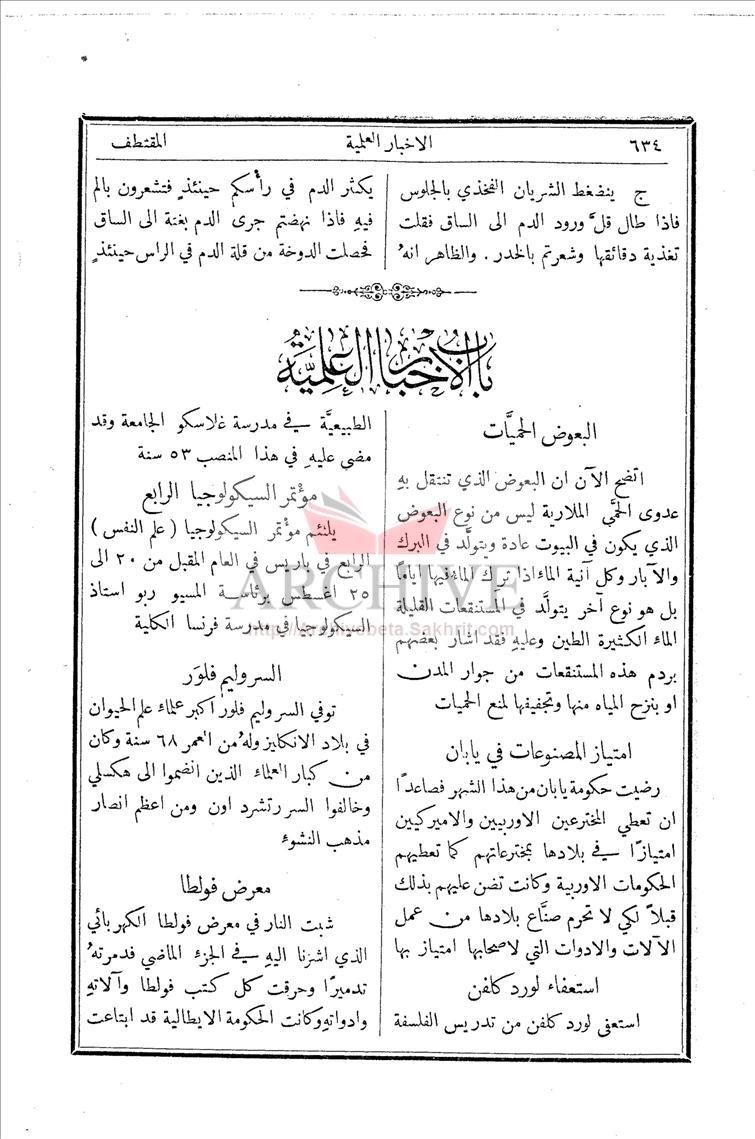 ٦٣٤
الاخبار العلمية
المقتطف
ج ينضغط الشريان الفخذي بالجلوس
فاذا طال قلَّ ورود الدم الى الساق فقلت
تغذية دقائقها وشعرتم بالخدر . والظاهر انهُ
يكثر الدم في رأسكم حينئذٍ فتشعرون بالم
فيهِ فاذا نهضتم جرى الدم بغتة الى الساق
فحصلت الدوخة من قلة الدم في الراس حينئذٍ
باب الاخبار العلمية
البعوض الحميَّات
اتضح الآن ان البعوض الذي تنتقل بهِ
عدوى الحمَّى الملارية ليس من نوع البعوض
الذي يكون في البيوت عادة ويتولَّد في البرك
والآبار وكل آنية الماء اذا ترك الماء فيها اياماً
بل هو نوع آخر يتولَّد في المستنقعات القليلة
الماء الكثيرة الطين وعليهِ فقد اشار بعضهم
بردم هذه المستنقعات من جوار المدن
او بنزح المياه منها وتجفيفها لمنع الحميات
امتياز المصنوعات في يابان
رضيت حكومة يابان من هذا الشهر فصاعداً
ان تعطي المخترعين الاوربيين والاميركيين
امتيازاً في بلادها بمخترعاتهم كما تعطيهم
الحكومات الاوربية وكانت تضن عليهم بذلك
قبلاً لكي لا تحرم صنَّاع بلادها من عمل
الآلات والادوات التي لاصحابها امتياز بها
استعفاء لورد كلفن
استعفى لورد كلفن من تدريس الفلسفة
الطبيعيَّة في مدرسة غلاسكو الجامعة وقد
مضى عليهِ في هذا المنصب ٥٣ سنة
مؤتمر السيكولوجيا الرابع
يلتئم مؤتمر السيكولوجيا ( علم النفس )
الرابع في باريس في العام المقبل من ٢٠ الى
٢٥ اغسطس برئاسة المسيو ربو استاذ
السيكولوجيا في مدرسة فرنسا الكلية
السر وليم فلوَر
توفي السر وليم فلور اكبر علماء علم الحيوان
في بلاد الانكليز ولهُ من العمر ٦٨ سنة وكان
من كبار العلماء الذين انضموا الى هكسلي
وخالفوا السر رتشرد اون ومن اعظم انصار
مذهب النشوء
معرض فولطا
شبت النار في معرض فولطا الكهربائي
الذي اشرنا اليهِ في الجزء الماضي فدمرتهُ
تدميراً وحرقت كل كتب فولطا وآلاتهِ
وادواتهِ وكانت الحكومة الايطالية قد ابتاعت
ARCHIVE
http://Archivebeta.Sakhrit.com